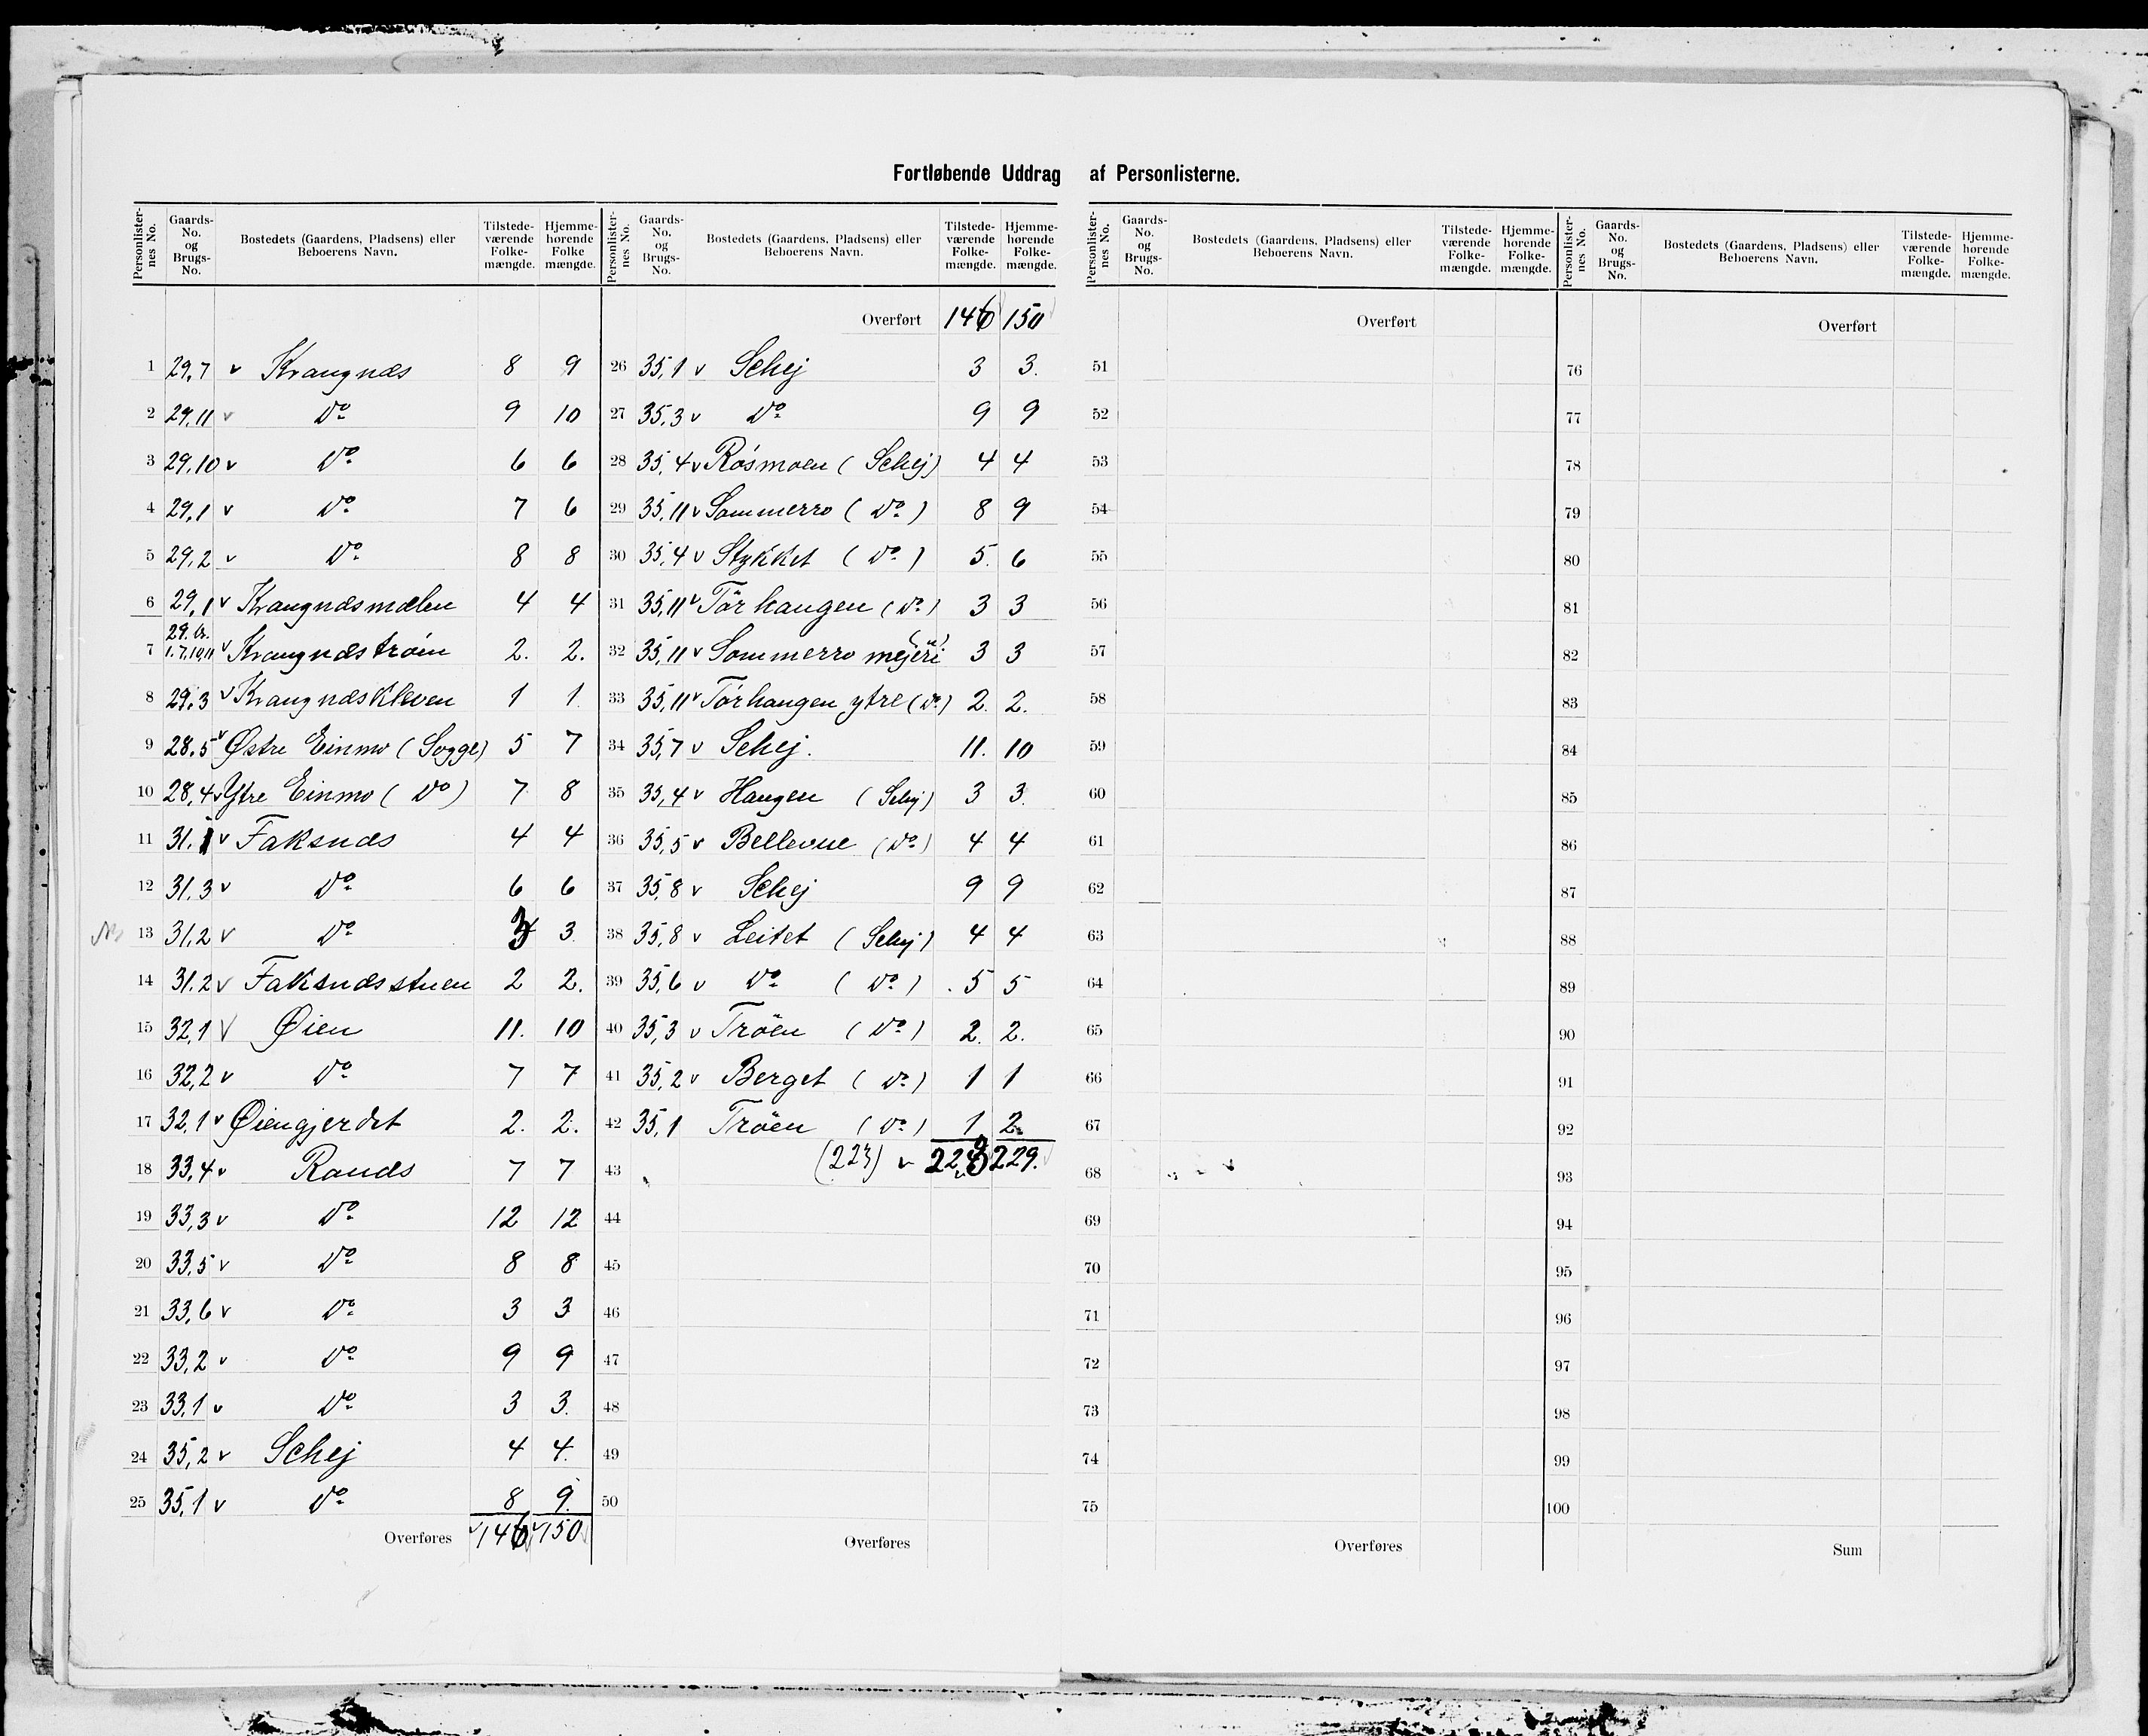 Fortløbende Uddrag af Personlisterne.
Personlisternes No. Gaards-No. og Brugs-No. Bostedets (Gaardens, Pladsens) eller Beboerens Navn. Tilstedeværende Folkemængde. Hjemmehørende Folkemængde.
1 29,7 v Krangnæs 8 9
2 29,11 v Do 9 10
3 29,10 v Do 6 6
4 29,1 v Do 7 6
5 29,2 v Do 8 8
6 29,1 v Krangnæsmælen 4 4
7 29. Br. 1.7.10.11 v Krangnæstrøen 2. 2.
8 29,3 v Krangnæskleven 1 1
9 28,5 v Østre Einmo (Sogge) 5 7
10 28,4 v Ytre Einmo (Do) 7 8
11 31.1 v Faksnæs 4 4
12 31,3 v Do 6 6
13 31,2 v Do 3 3
14 31.2 v Faksnæsstuen 2 2.
15 32,1 v Øien 11. 10
16 32,2 v Do 7 7
17 32,1 v Øiengjerdet 2. 2.
18 33,4 v Randæs 7 7
19 33,3 v Do 12 12
20 33,5 v Do 8 8
21 33,6 v Do 3 3
22 33,2 v Do 9 9
23 33,1 v Do 3 3.
24 35,2 v Schej 4 4.
25 35,1 v Do 8 9.
Overføres v 146 v 150
Personlisternes No. Gaards-No. og Brugs-No. Bostedets (Gaardens, Pladsens) eller Beboerens Navn. Tilstedeværende Folkemængde. Hjemmehørende Folkemængde.
Overført 146 150
26 35,1 v Schej 3 3.
27 35,3 v Do 9 9
28 35,4 v Røsmoen (Schej) 4 4
29 35,11 v Sommerro (Do) 8 9
30 35,4 v Stykket (Do) 5. 6
31 35,11 v Tørhaugen (Do) 3 3
32 35,11 v Sommerro mejeri (Do) 3 3
33 35,11 v Tørhaugen ytre (Do) 2. 2.
34 35,7 v Schej. 11. 10
35 35,4 v Haugen (Schej) 3 3.
36 35,5 v Bellevue (Do) 4 4
37 35,8 v Schej 9 9
38 35,8 v Leitet (Schej) 4 4
39 35,6 v Do (Do) 5 5
40 35,3 v Trøen (Do) 2. 2.
41 35,2 v Berget (Do) 1 1
42 35,1 Trøen (Do) 1 2.
43 (223) v 223 229.
44
45
46
47
48
49
50
Overføres
Personlisternes No. Gaards-No. og Brugs-No. Bostedets (Gaardens, Pladsens) eller Beboerens Navn. Tilstedeværende Folkemængde. Hjemmehørende Folkemængde.
Overført
51
52
53
54
55
56
57
58
59
60
61
62
63
64
65
66
67
68
69
70
71
72
73
74
75
Overføres
Personlisternes No. Gaards-No. og Brugs-No. Bostedets (Gaardens, Pladsens) eller Beboerens Navn. Tilstedeværende Folkemængde. Hjemmehørende Folkemængde.
Overført
76
77
78
79
80
81
82
83
84
85
86
87
88
89
90
91
92
93
94
95
96
97
98
99
100
Sum